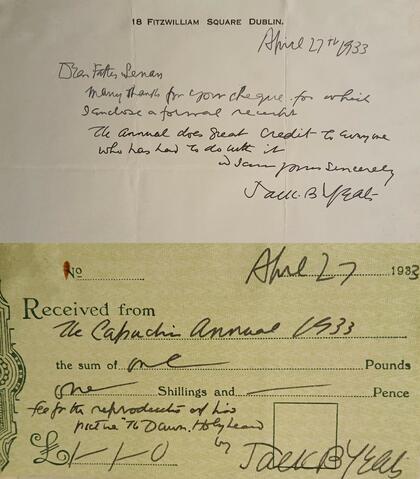 18 FITZWILLIAM SQUARE DUBLIN.
April 27TH 1933
Dear Father Senan
Many thanks for your cheque for which
I enclose a formal receipt
The Annual does great credit to everyone
who has had to do with it
I am yours sincerely
Jack. B Yeats
No
April 27 1933
Received from
The Capuchin Annual 1933
the sum of one Pounds
one Shillings and Pence
fee for the reproduction of his
picture "The Dawn. Holyhead
£1-1-0 by Jack B Yeats